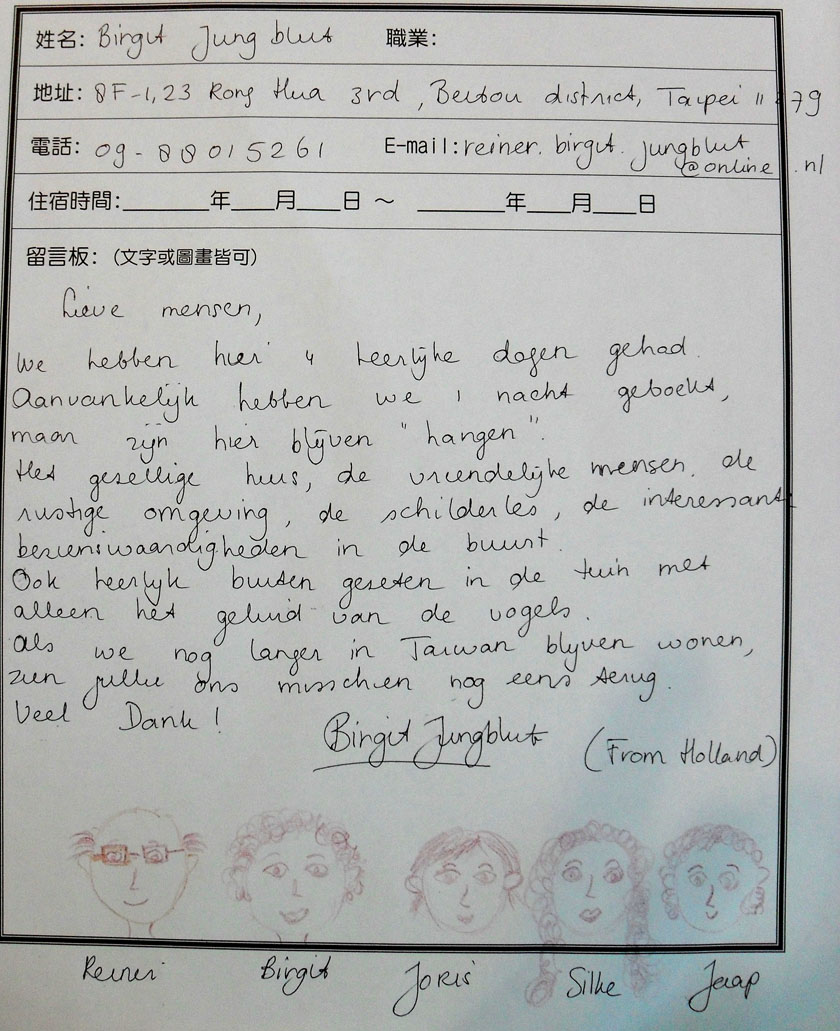 姓名: Birgit Jungblut 職業:
地址: 8F-1, 23 Rong Hua 3rd, Beitou district, Taipei 11279
電話: 09-88015261 E-mail: reiner.birgit.jungblut
@online.nl
住宿時間:______年___月___日 ~ ______年___月___日
留言板: (文字或圖畫皆可)
Lieve mensen,
We hebben hier 4 heerlijke dagen gehad.
Aanvankelijk hebben we 1 nacht geboekt,
maar zijn hier blijven "hangen".
Het gezellige huis, de vriendelijke mensen, de
rustige omgeving, de schilderles, de interessante
bezienswaardigheden in de buurt.
Ook heerlijk buiten gezeten in de tuin met
alleen het geluid van de vogels.
als we nog langer in Taiwan blijven wonen,
zien jullie ons misschien nog eens terug.
Veel Dank!
Birgit Jungblut (From Holland)
Reiner Birgit Joris Silke Jaap